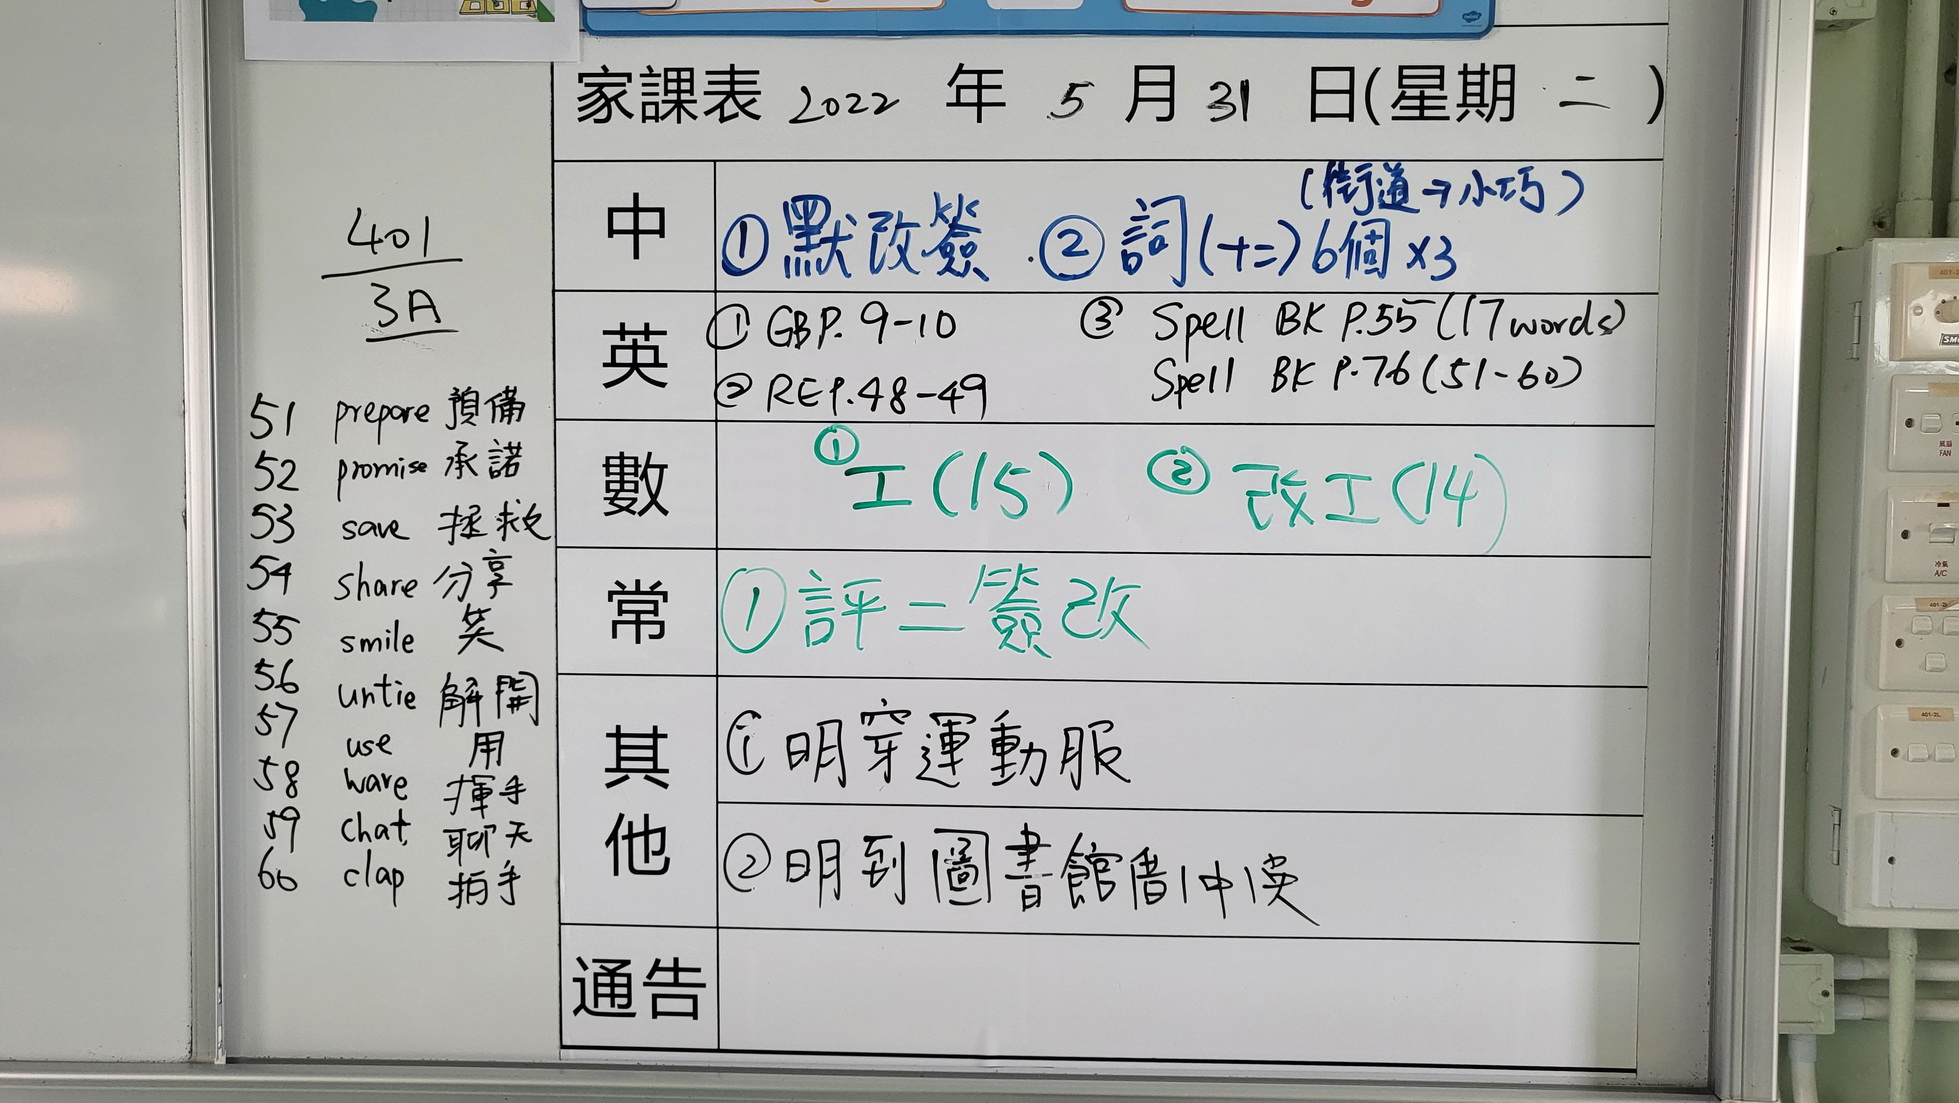 家課表 2022 年 5 月 31 日(星期 二 )
401
3A
51 prepare 預備
52 promise 承諾
53 save 拯救
54 share 分享
55 smile 笑
56 untie 解開
57 use 用
58 ware 揮手
59 chat 聊天
60 clap 拍手
中
(街道→小巧)
①默改簽 ②詞(十二)6個×3
英
① GBP. 9-10 ③ Spell BK P.55 (17 words)
② REP. 48-49 Spell BK P.76 (51-60)
數
① 工(15) ② 改工(14)
常
①評二簽改
其他
①明穿運動服
②明到圖書館借1中1英
通告
風扇
FAN
冷氣
A/C
401-2L